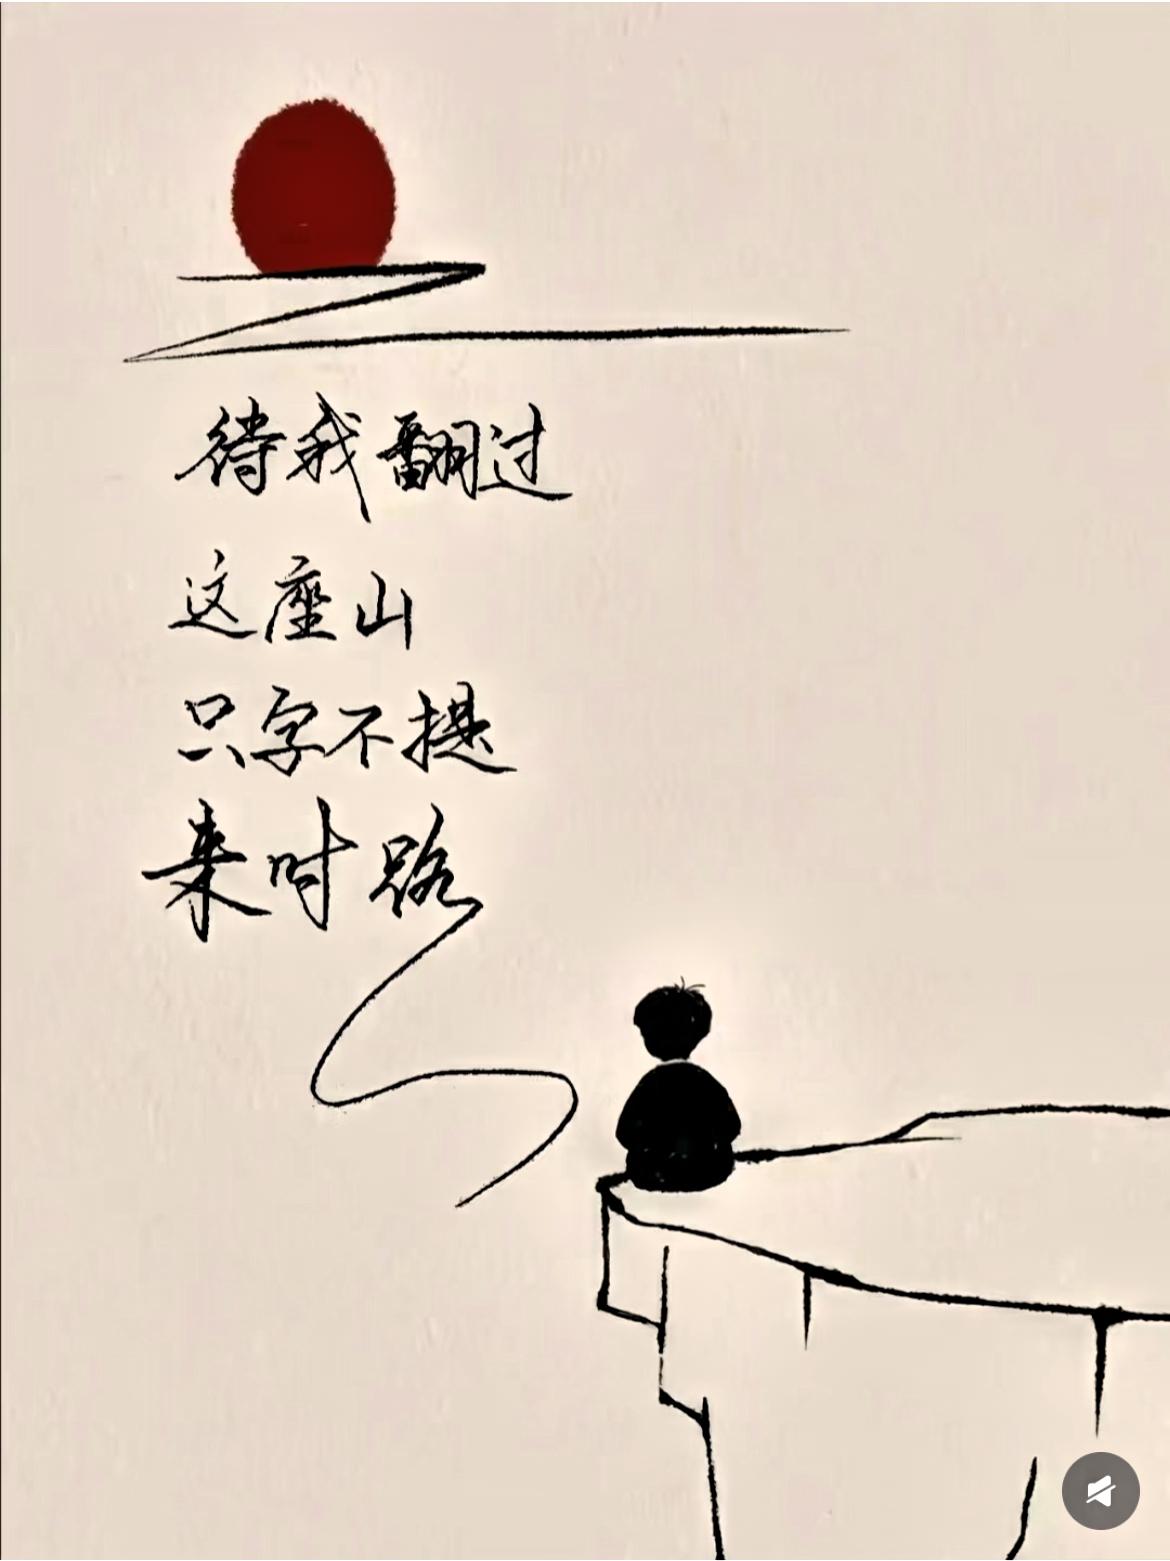 待我翻过
这座山
只字不提
来时路